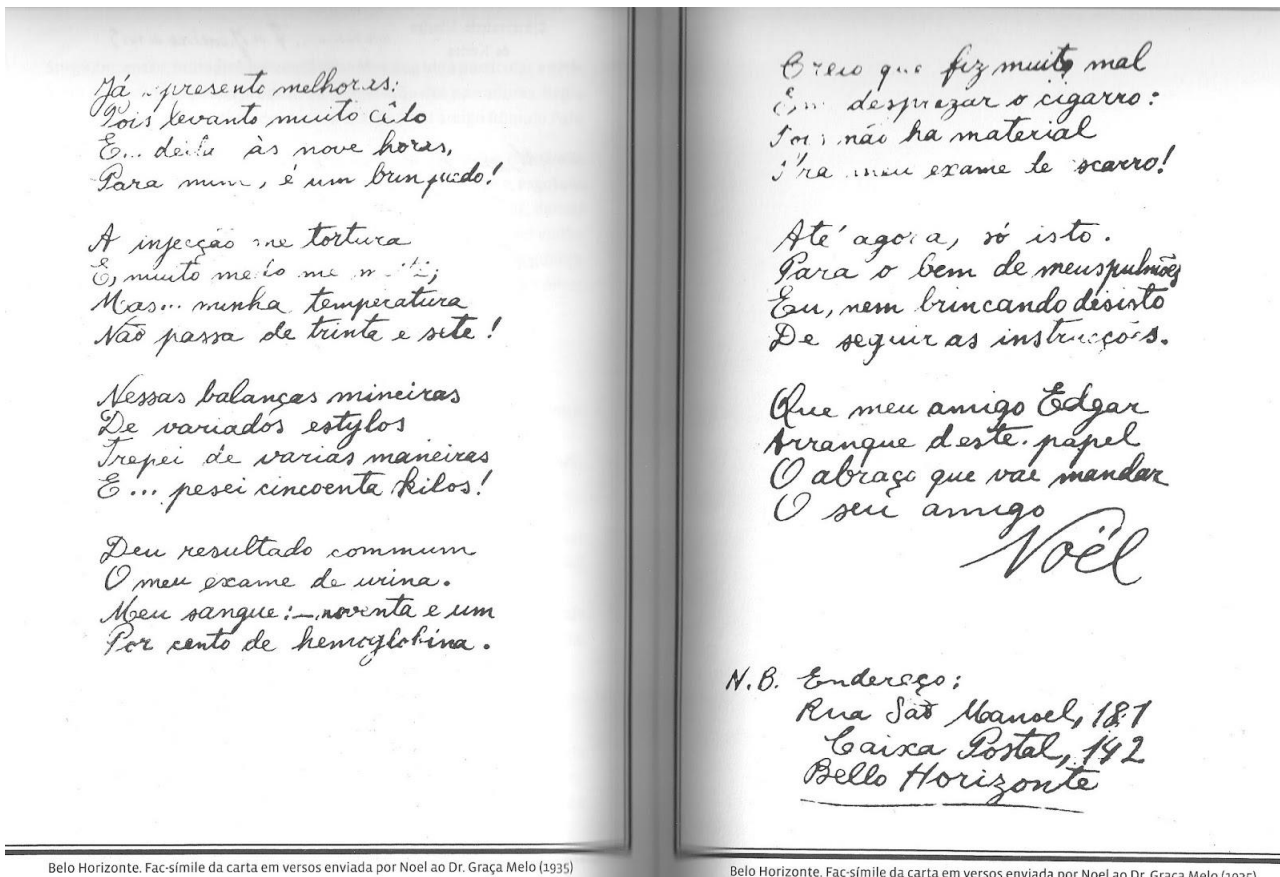 Já apresento melhoras,
Pois levanto muito cêdo
E... deitar às nove horas,
Para mim, é um brinquedo!
A injecção me tortura
E, muito medo me mette;
Mas... minha temperatura
Não passa de trinta e sete!
Nessas balanças mineiras
De variados estylos
Trepei de varias maneiras
E... pesei cincoenta kilos!
Deu resultado commum
O meu exame de urina.
Meu sangue: — noventa e um
Por cento de hemoglobina.
Belo Horizonte. Fac-símile da carta em versos enviada por Noel ao Dr. Graça Melo (1935)
Creio que fiz muito mal
Em desprezar o cigarro:
Pois não ha material
P'ra meu exame de escarro!
Até agora, só isto.
Para o bem de meus pulmões
Eu, nem brincando desisto
De seguir as instrucções.
Que meu amigo Edgar
Arranque deste papel
O abraço que vae mandar
O seu amigo
Noël
N.B. Endereço:
Rua São Manoel, 181
Caixa Postal, 142
Bello Horizonte
Belo Horizonte. Fac-símile da carta em versos enviada por Noel ao Dr. Graça Melo (1935)